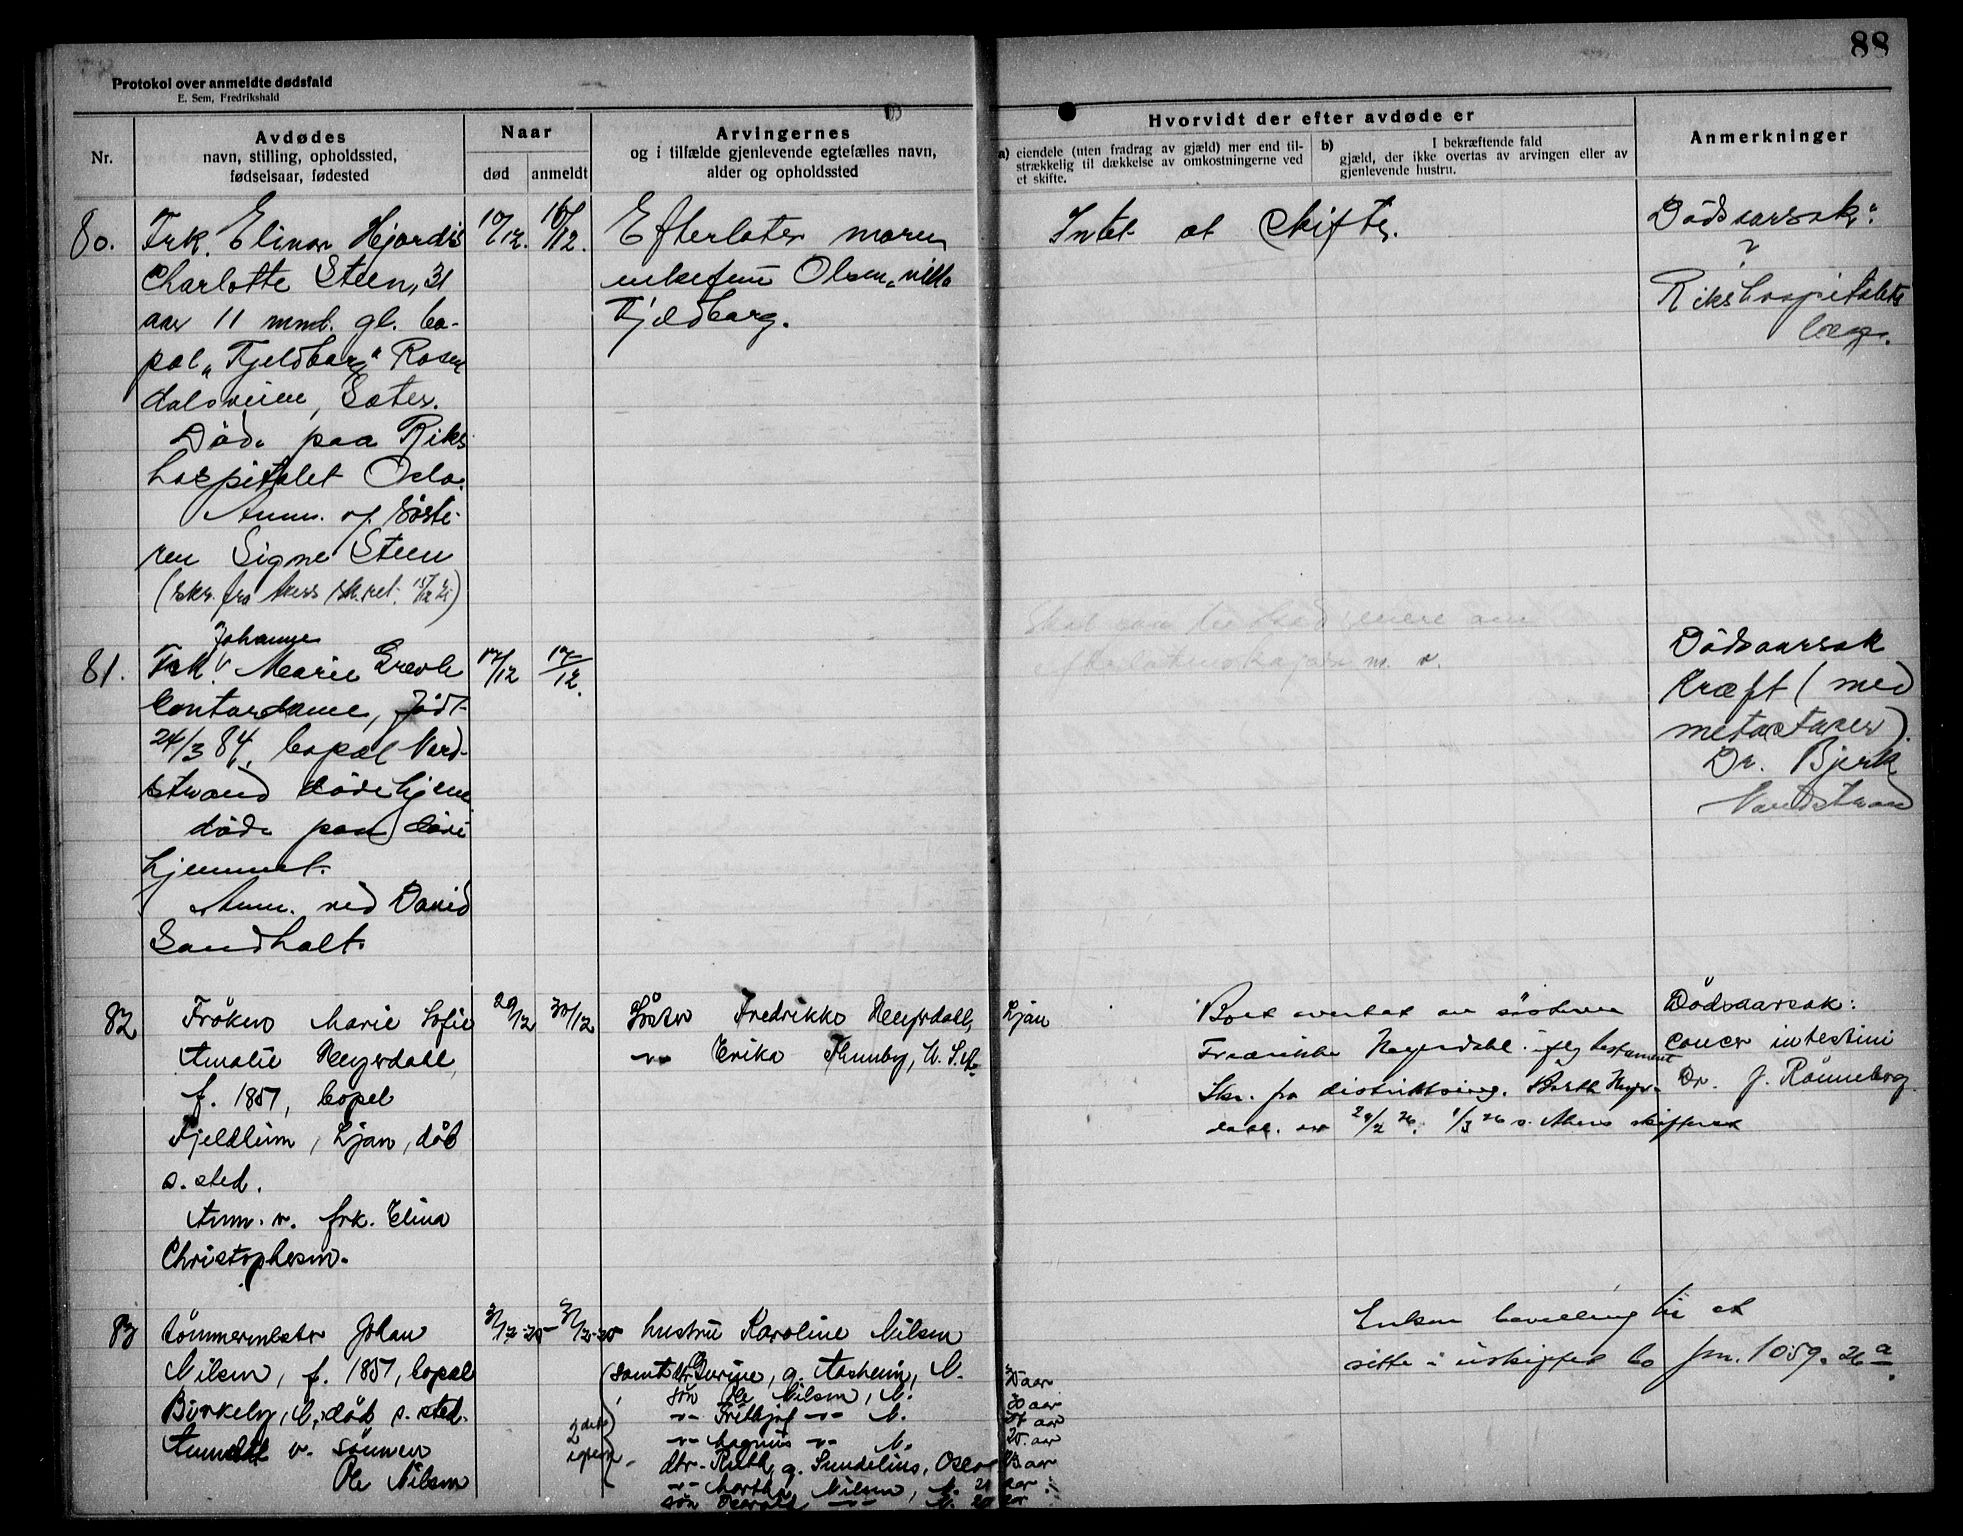 88
Protokol over anmeldte dødsfald
E. Sem, Fredrikshald
Nr.
Avdødes
navn, stilling, opholdssted,
fødselsaar, fødested
Naar
død
anmeldt
Arvingernes
og i tilfælde gjenlevende egtefælles navn,
alder og opholdssted
Hvorvidt der efter avdøde er
a) eiendele (uten fradrag av gjæld) mer end til-
strækkelig til dækkelse av omkostningerne ved
et skifte.
b) I bekræftende fald
gjæld, der ikke overtas av arvingen eller av
gjenlevende hustru.
Anmerkninger
80.
Frk. Elinor Hjordis
Charlotte Steen, 31
aar 11 mnd. gl. bo-
pæl „Fjeldborg" Rosen
dalsveien, Sæter.
Døde paa Riks
hospitalet Oslo.
Anm. af søste-
ren Signe Steen
(skr. fra Akers sk.ret.
10/12.
16/12.
Efterlater moren
enkefru Olsen, villa
Fjeldborg.
Intet at skifte.
Dødsaarsak:
?
Rikshospitalets
læge.
81.
Johanne
Frk. Marie Grevle
kontordame, født
24/3 84, bopæl Nord-
strand
døde paa
hjemmet.
Anm. ved David
Sandholt.
17/12
17/12.
Dødsaarsak
Kræft (med
metastaser).
Dr. Bjerk
Nordstrand
82
Frøken Marie Sofie
Amalie Heyerdahl,
f. 1857, bopæl
Fjeldlum, Ljan, død
s. sted.
Anm. v. frk. Elina
Christophersen.
29/12
30/12
Søster Fredrikke Heyerdahl, Ljan
-"- Erika Thunby, U.S.A.
Boet overtat av søsteren
Fredrikke Heyerdahl iflg testament
Skr. fra distriktsing. Barth Heyer-
dahl av 29/2 26. 1/3 26 s. Akers skifteret
Dødsaarsak:
cancer intestini
Dr. J. Rønneberg
83
tømmermester Johan
Nilsen, f. 1857, bopæl
Birkely, N, død s. sted.
Anmeldt v. sønnen
Ole Nilsen
31/12-25
31/12-25
hustru Karoline Nilsen
samt dtr. g. Aasheim, N. 35 aar
søn Ole Nilsen, N. 30 aar
-"- Fritjof -"- N. aar
-"- Magnus -"- N. 25 aar
dtr. Ruth, g. Sundelius, Oslo aar
-"- Martha Nilsen, N. 21 aar
søn -"- N. 20 aar
Enken bevilling til at
sitte i uskiftet bo jnr. 1059. 26 a.